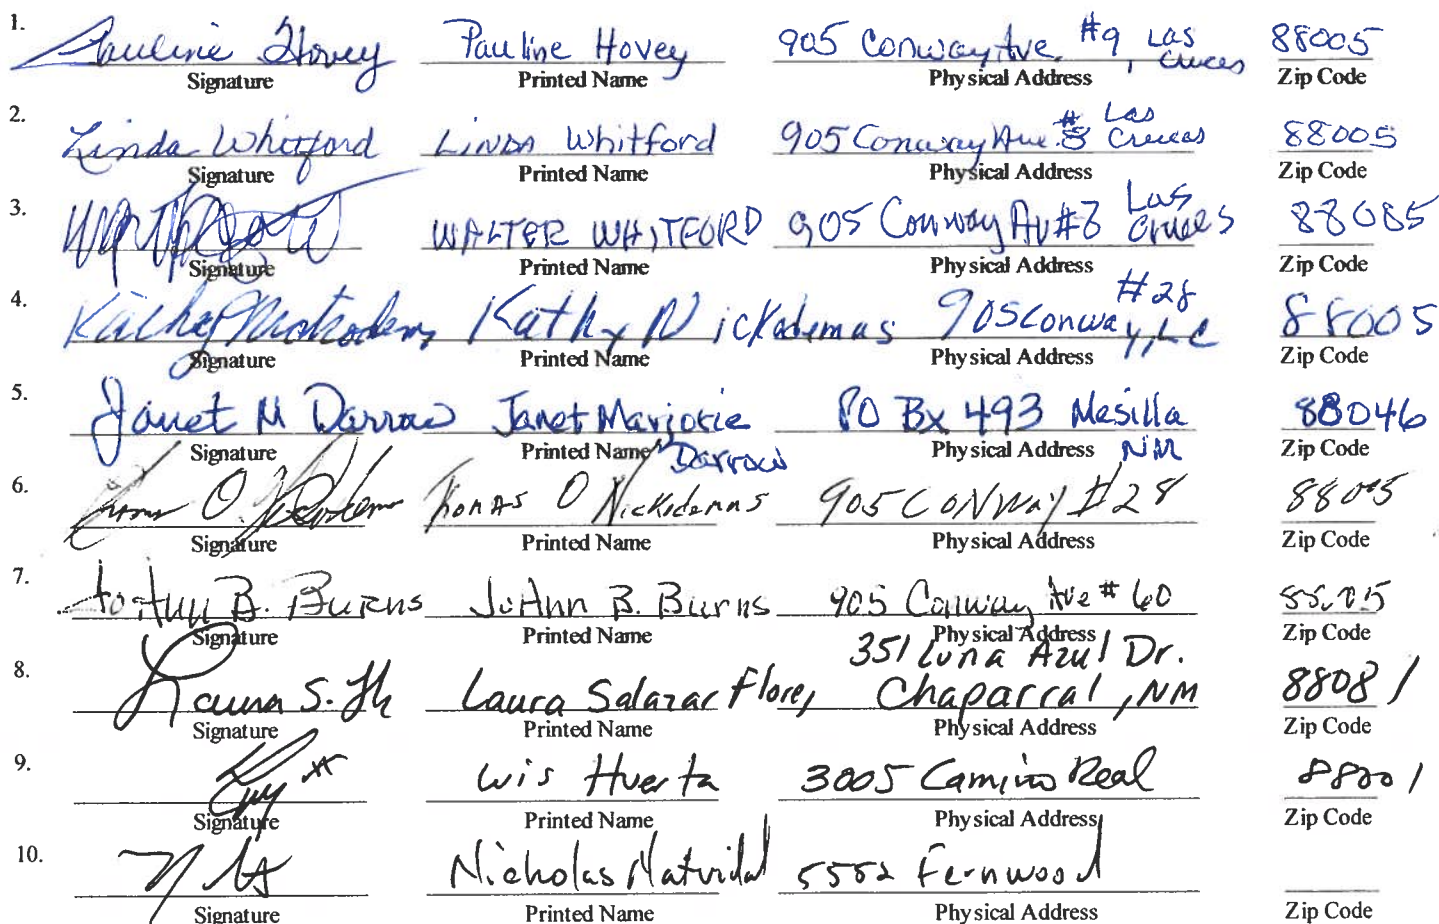 1. Pauline Hovey Pauline Hovey 905 Conway Ave. #9, Las Cruces 88005
Signature Printed Name Physical Address Zip Code
2. Linda Whitford LINDA Whitford 905 Conway Ave. #8 Las Cruces 88005
Signature Printed Name Physical Address Zip Code
3. WALTER WHITFORD 905 Conway Av #8 Las Cruces 88005
Signature Printed Name Physical Address Zip Code
4. Kathy Nickodemus Kathy Nickademas 905 Conway, LC #28 88005
Signature Printed Name Physical Address Zip Code
5. Janet M Darrow Janet Marjorie Darrow PO Bx 493 Mesilla NM 88046
Signature Printed Name Physical Address Zip Code
6. Thomas O Nickodemus 905 CONWay #28 88005
Signature Printed Name Physical Address Zip Code
7. JoAnn B. Burns JoAnn B. Burns 905 Conway Ave #60 88005
Signature Printed Name Physical Address Zip Code
8. Laura S. Laura Salazar Flores 351 Luna Azul Dr. Chaparral, NM 88081
Signature Printed Name Physical Address Zip Code
9. Luis Huerta 3005 Camino Real 88001
Signature Printed Name Physical Address Zip Code
10. Nicholas Natividad 5552 Fernwood
Signature Printed Name Physical Address Zip Code